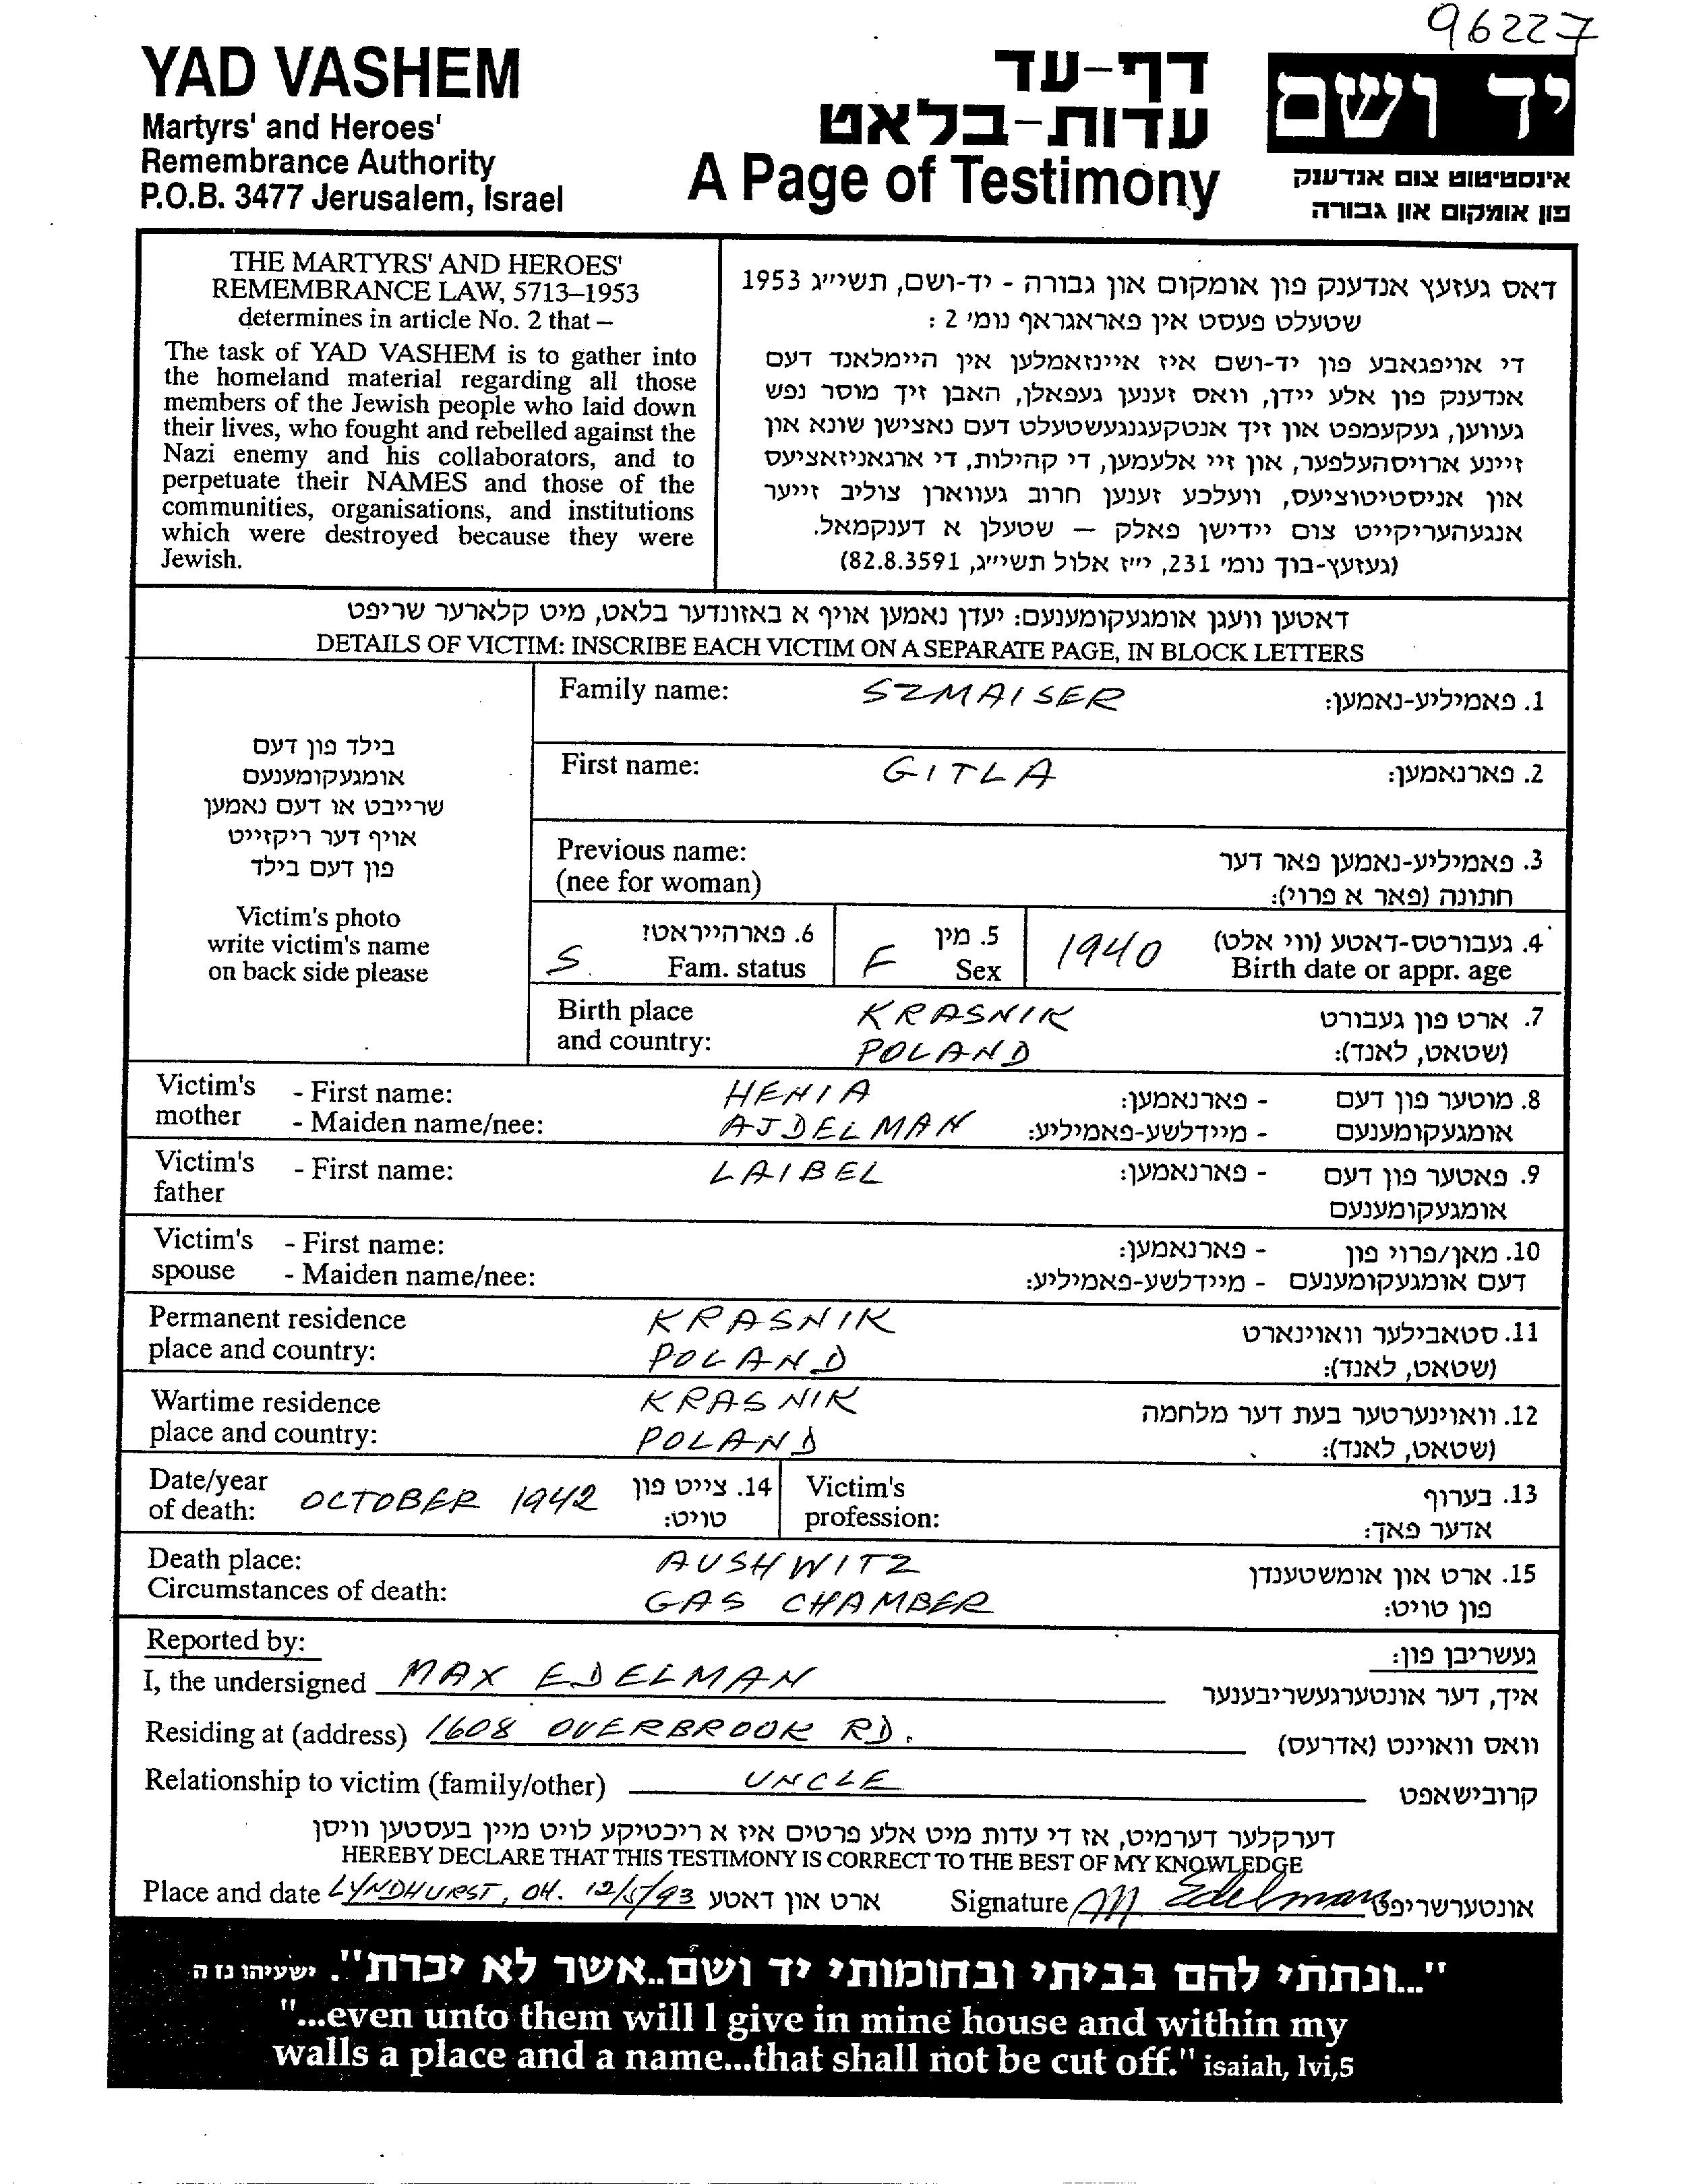 96227
YAD VASHEM
Martyrs' and Heroes'
Remembrance Authority
P.O.B. 3477 Jerusalem, Israel
דף-עד
עדות-בלאט
A Page of Testimony
יד ושם
אינסטיטוט צום אנדענק
פון אומקום און גבורה
THE MARTYRS' AND HEROES'
REMEMBRANCE LAW, 5713–1953
determines in article No. 2 that –
The task of YAD VASHEM is to gather into
the homeland material regarding all those
members of the Jewish people who laid down
their lives, who fought and rebelled against the
Nazi enemy and his collaborators, and to
perpetuate their NAMES and those of the
communities, organisations, and institutions
which were destroyed because they were
Jewish.
דאס געזעץ אנדענק פון אומקום און גבורה - יד-ושם, תשי״ג 1953
שטעלט פעסט אין פאראגראף נומ׳ 2 :
די אויפגאבע פון יד-ושם איז איינזאמלען אין היימלאנד דעם
אנדענק פון אלע יידן, וואס זענען געפאלן, האבן זיך מוסר נפש
געווען, געקעמפט און זיך אנטקעגנגעשטעלט דעם נאצישן שונא און
זיינע ארויסהעלפער, און זיי אלעמען, די קהילות, די ארגאניזאציעס
און אניסטיטוציעס, וועלכע זענען חרוב געווארן צוליב זייער
אנגעהעריקייט צום יידישן פאלק – שטעלן א דענקמאל.
(געזעץ-בוך נומ׳ 231, י״ז אלול תשי״ג, 82.8.3591)
דאטען וועגן אומגעקומענעם: יעדן נאמען אויף א באזונדער בלאט, מיט קלארער שריפט
DETAILS OF VICTIM: INSCRIBE EACH VICTIM ON A SEPARATE PAGE, IN BLOCK LETTERS
בילד פון דעם
אומגעקומענעם
שרייבט או דעם נאמען
אויף דער ריקזייט
פון דעם בילד
Victim's photo
write victim's name
on back side please
Family name: SZMAISER 1. פאמיליע-נאמען:
First name: GITLA 2. פארנאמען:
Previous name:
(nee for woman)
3. פאמיליע-נאמען פאר דער
חתונה (פאר א פרוי):
S. 6. פארהייראט?
Fam. status
F 5. מין
Sex
1940 4. געבורטס-דאטע (ווי אלט)
Birth date or appr. age
Birth place KRASNIK 7. ארט פון געבורט
and country: POLAND (שטאט, לאנד):
Victim's - First name: HENIA - פארנאמען: 8. מוטער פון דעם
mother - Maiden name/nee: AJDELMAN - מיידלשע-פאמיליע: אומגעקומענעם
Victim's - First name: LAIBEL - פארנאמען: 9. פאטער פון דעם
father אומגעקומענעם
Victim's - First name: - פארנאמען: 10. מאן/פרוי פון
spouse - Maiden name/nee: - מיידלשע-פאמיליע: דעם אומגעקומענעם
Permanent residence KRASNIK 11. סטאבילער וואוינארט
place and country: POLAND (שטאט, לאנד):
Wartime residence KRASNIK 12. וואוינערטער בעת דער מלחמה
place and country: POLAND (שטאט, לאנד):
Date/year
of death: OCTOBER 1942 14. צייט פון
טויט:
Victim's
profession:
13. בערוף
אדער פאך:
Death place: AUSHWITZ 15. ארט און אומשטענדן
Circumstances of death: GAS CHAMBER פון טויט:
Reported by: געשריבן פון:
I, the undersigned MAX EDELMAN איך, דער אונטערגעשריבענער
Residing at (address) 1608 OVERBROOK RD. וואס וואוינט (אדרעס)
Relationship to victim (family/other) UNCLE קרובישאפט
דערקלער דערמיט, אז די עדות מיט אלע פרטים איז א ריכטיקע לויט מיין בעסטען וויסן
HEREBY DECLARE THAT THIS TESTIMONY IS CORRECT TO THE BEST OF MY KNOWLEDGE
Place and date LYNDHURST, OH. 12/5/93 ארט און דאטע Signature M Edelman אונטערשריפט
"...ונתתי להם בביתי ובחומותי יד ושם..אשר לא יכרת". ישעיהו נז ה
"...even unto them will I give in mine house and within my
walls a place and a name...that shall not be cut off." isaiah, lvi,5